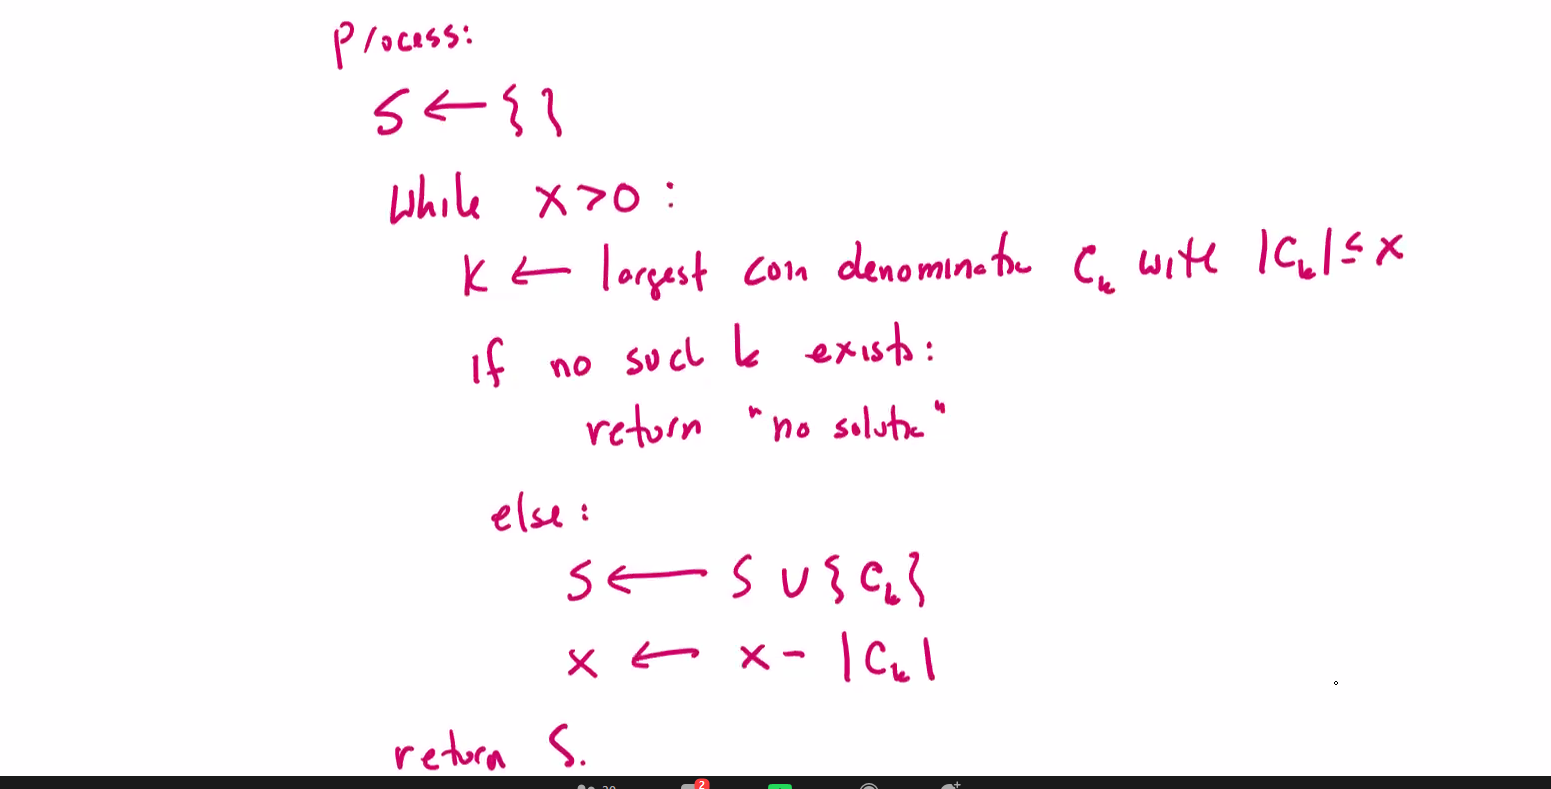 Process:
S ← { }
While x > 0 :
K ← largest coin denomination Cₖ with |Cₖ| ≤ x
If no such k exists:
return "no solution"
else :
S ← S ∪ { Cₖ }
x ← x - |Cₖ|
return S.
2